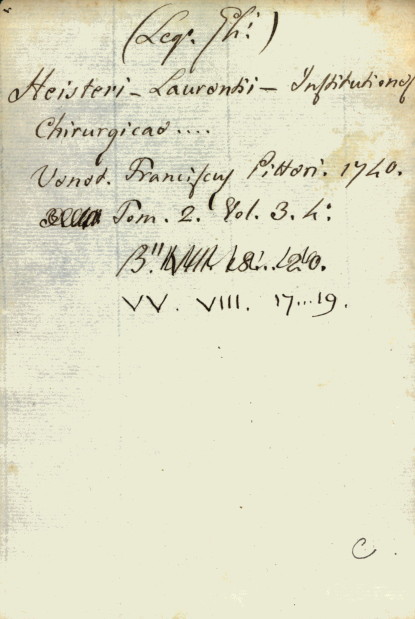 (Leg. Ph:)
Heisteri - Laurentii - Institutiones
Chirurgicae ....
Venet. Franciscus Pitteri. 1740.
Tom. 2. Vol. 3. 4:
B."
VV. VIII. 17...19.
C.